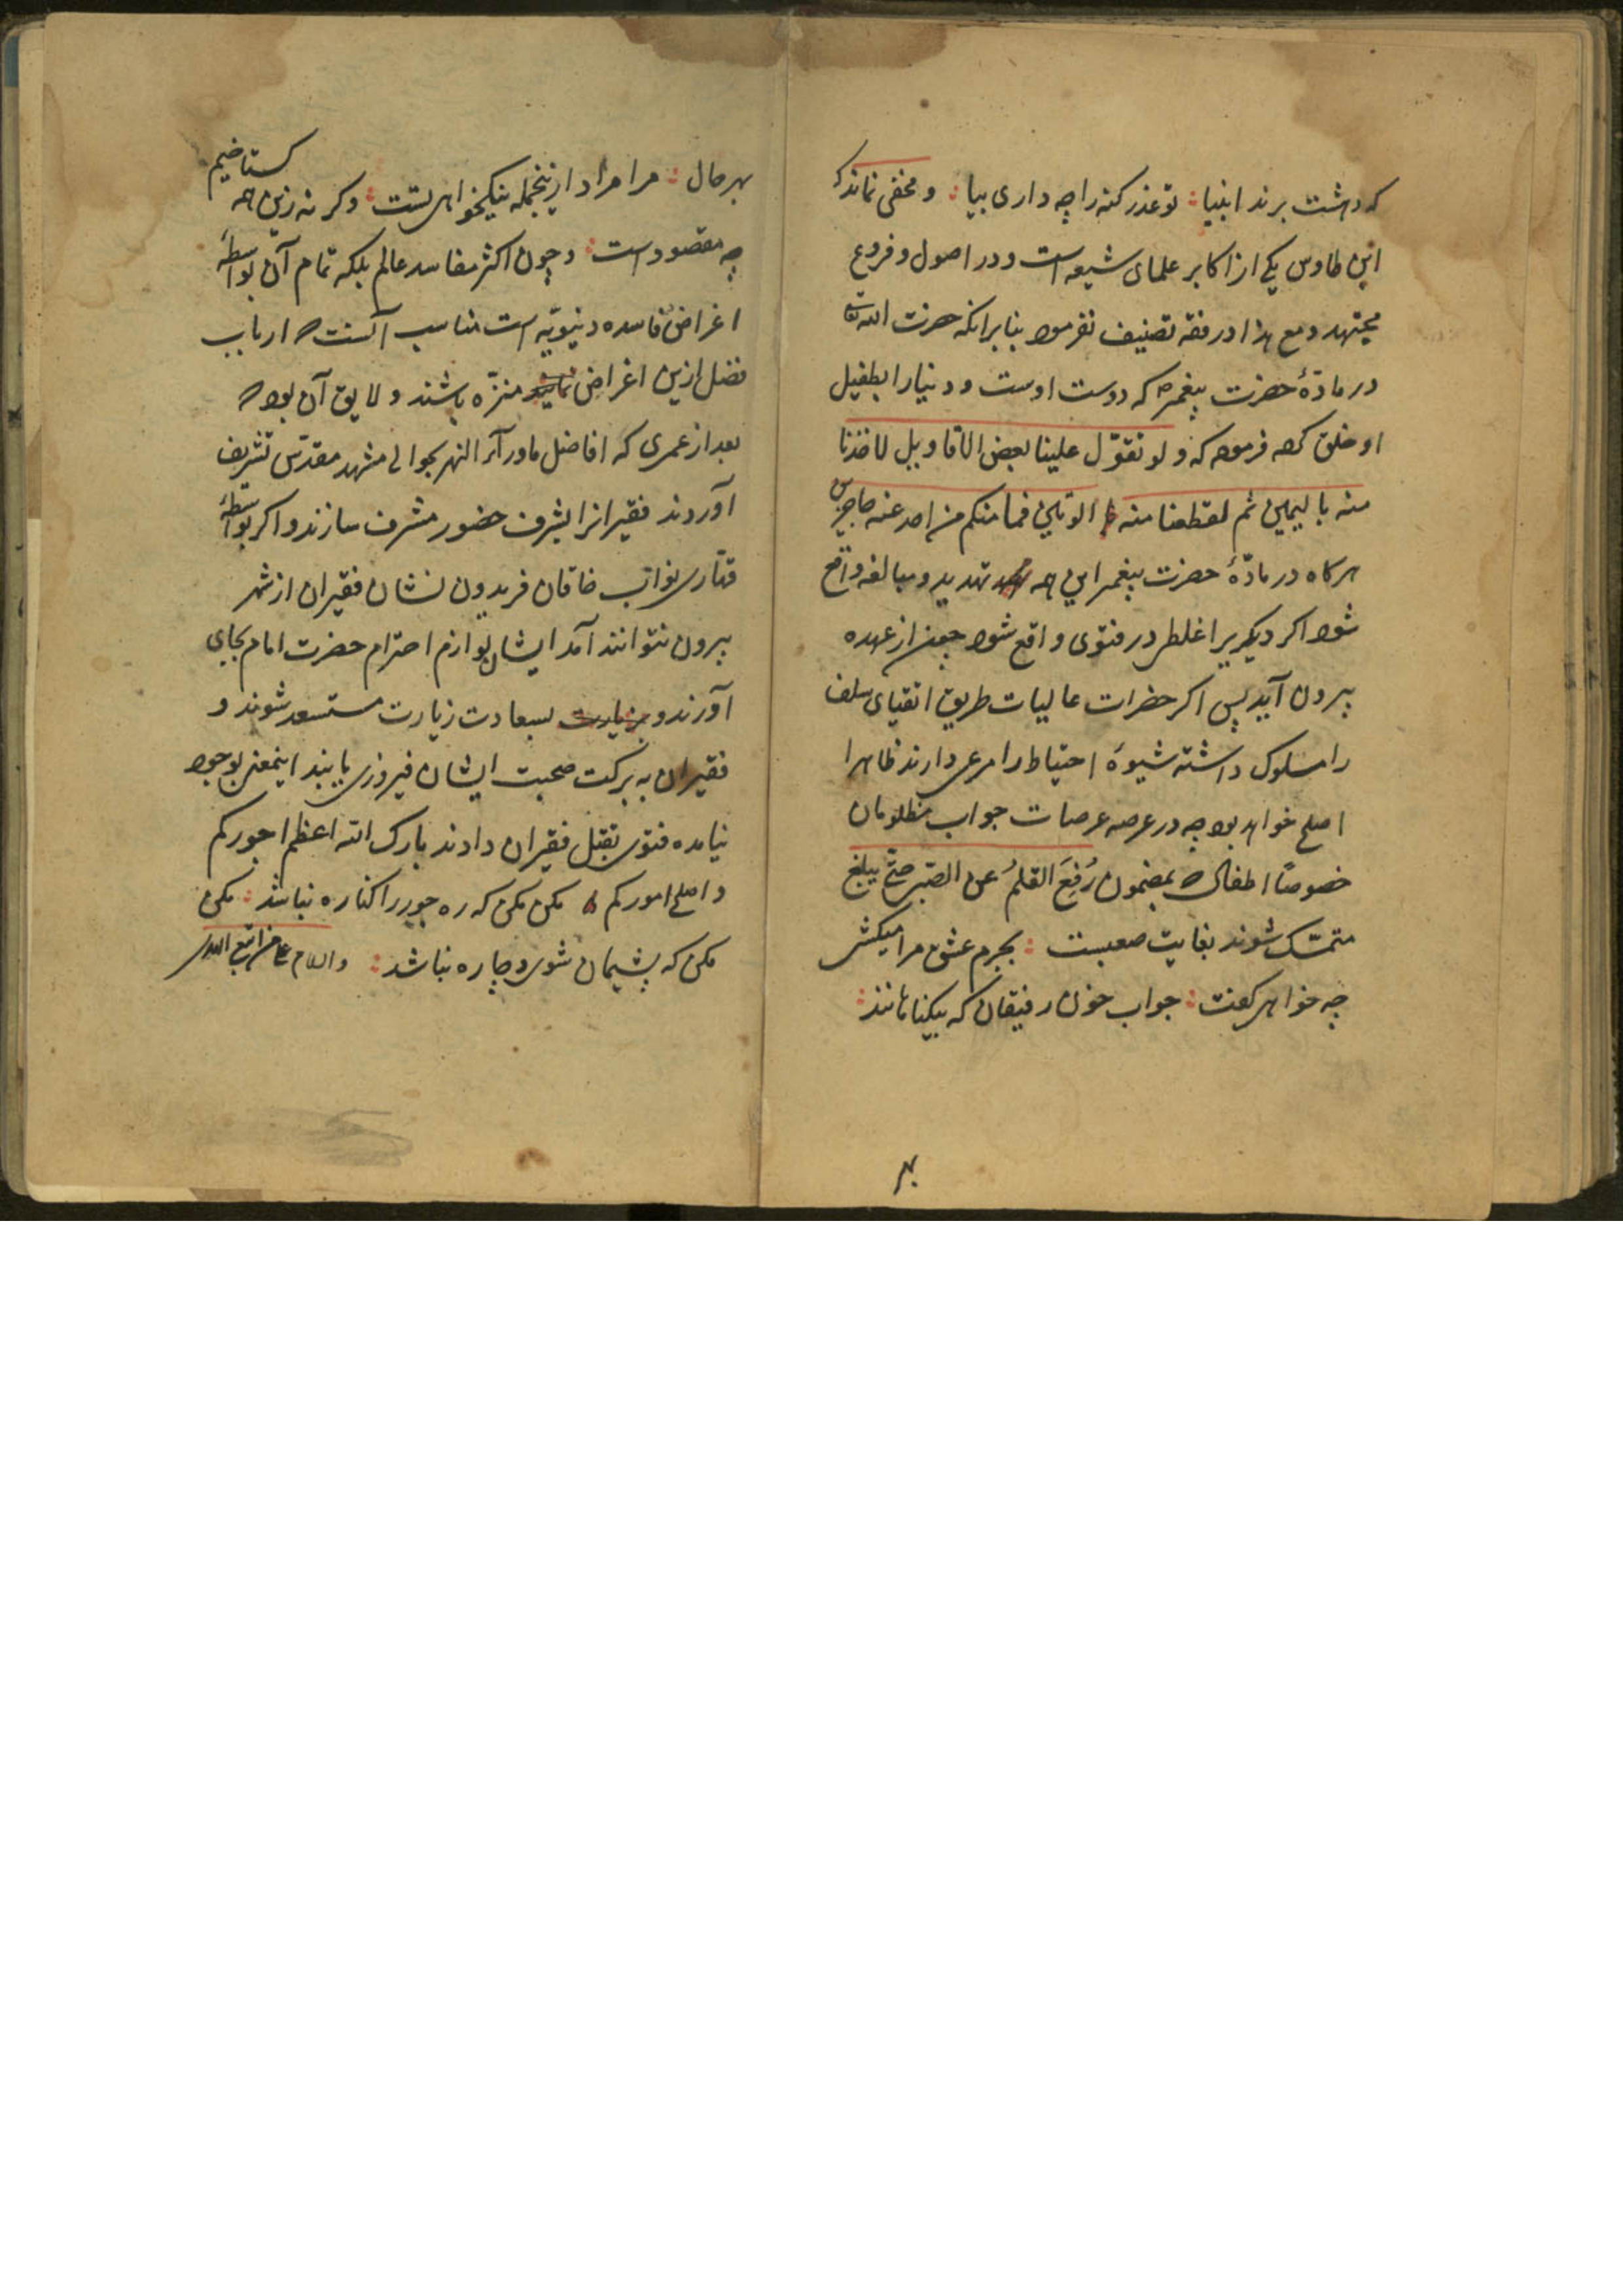 که دهشت برند انبیا: تو عذر گنه را چه داری بیا: و مخفی نماند که
ابن طاوس یکی از اکابر علمای شیعه است و در اصول و فروع
مجتهد و مع هذا در فقه تصنیف نفرموده بنا برانکه حضرت الله تعالی
در مادهٔ حضرت پیغمبر که دوست اوست و دنیا را بطفیل
او خلق کرده فرموده که و لو تقوّل علینا بعض الاقاویل لاخذنا
منه بالیمین ثم لقطعنا منه الوتین فما منکم من احد عنه حاجزین
هرگاه در مادّهٔ حضرت پیغمبر این همه تهدید و مبالغه واقع
شود اگر دیگریرا غلطی در فتوی واقع شود چون از عهده
بیرون آید پس اگر حضرات عالیات طریق اتقیای سلف
را مسلوک داشته شیوهٔ احتیاط را مرعی دارند ظاهرا
اصلح خواهد بود چه در عرصه عرصات جواب مظلومان
خصوصًا اطفال که بمضمون رُفِعَ القلمُ عن الصّبی حتّی یبلغ
متمسّک شوند بغایت صعبست: بجرم عشق مرا میکشی
چه خواهی گفت: جواب خون رفیقان که بیگناهانند:
بهر حال: مرا مراد ازینجمله نیکخواهی تست: وگرنه زین همه گستاخیم
چه مقصود است: و چون اکثر مفاسد عالم بلکه تمام آن بواسطهٔ
اغراض فاسده دنیویّه است مناسب آنست که ارباب
فضل ازین اغراض منزّه باشند و لایق آن بود که
بعد از عمری که افاضل ماورآء النهر بحوالی مشهد مقدّس تشریف
آوردند فقیرانرا بشرف حضور مشرف سازند و اگر بواسطهٔ
قتّاری نواب خاقان فریدون نشان فقیران از شهر
بیرون نتوانند آمد ایشان لوازم احترام حضرت امام بجای
آورند و بسعادت زیارت مستسعد شوند و
فقیران به برکت صحبت ایشان فیروزی یابند اینمعنی بوجود
نیامده فتوی بقتل فقیران دادند بارک الله اعظم اجورکم
و اصلح امورکم مکن مکن که ره جور را کناره نباشد: مکن
مکن که پشیمان شوی و چاره نباشد: والسلام علی من اتبع الهدی